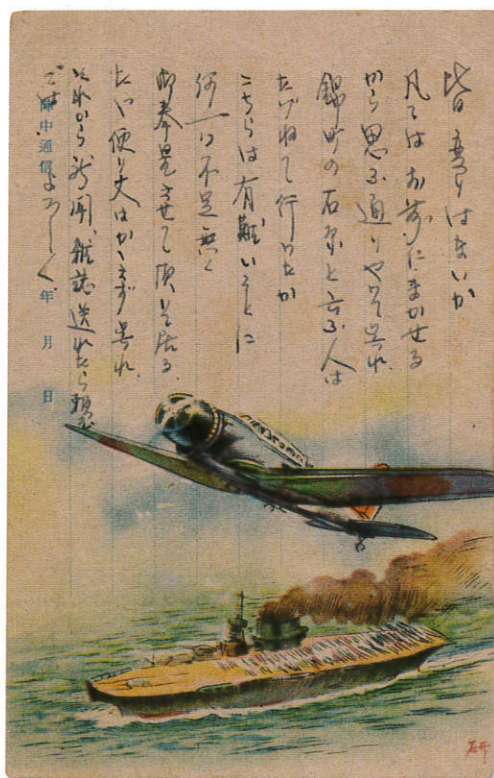 皆変りはないか
凡てはお前にまかせる
から思ふ通りやって呉れ
錦町の石原と云ふ人は
たづねて行ったか
こちらは有難いことに
何一つ不足無く
御奉公させて頂いて居る
たゞ便り丈はかゝさず呉れ
それから新聞、雑誌送れたら頼む
ではよろしく
陣中通信 年 月 日